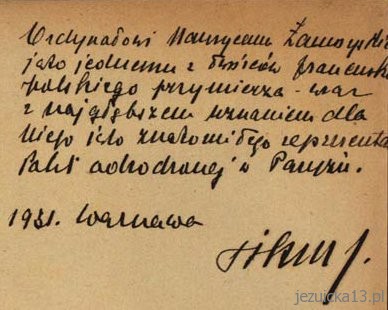 Ordynatowi Maurycemu Zamoyski
jako jednemu z twórców francusko
polskiego przymierza - wraz
z najgłębszem uznaniem dla
niego jako znakomitego reprezenta
Polski odrodzonej w Paryżu.
1931. Warszawa
jezuicka13.pl